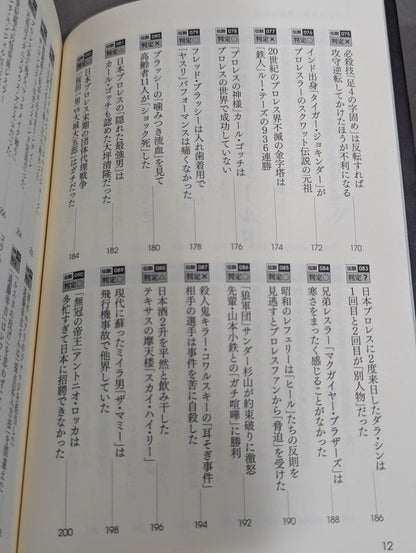 伝説 075
判定○
必殺技「足4の字固め」は反転すれば
攻守逆転してかけたほうが不利になる
170
伝説 076
判定○
インド出身「タイガー・ジョキンダー」が
プロレスラーのスクワット伝説の元祖
172
伝説 077
判定×
20世紀のプロレス界不滅の金字塔は
「鉄人」ルー・テーズの936連勝
174
伝説 078
「プロレスの神様」カール・ゴッチは
プロレスの世界で成功していない
176
伝説 079
判定○
フレッド・ブラッシーは入れ歯着用で
「ヤスリ」パフォーマンスは痛くなかった
178
伝説 080
判定×
ブラッシーの「噛みつき流血」を見て
高齢者11人が「ショック死」した
180
伝説 081
判定○
日本プロレスの「隠れた最強男」は
カール・ゴッチも認めた大坪清隆だった
182
日本プロレス末期の団体代理戦争
「桜田一男vs大城大五郎」はガチだった
184
伝説 083
判定?
日本プロレスに2度来日したダラ・シンは
1回目と2回目が「別人物」だった
186
伝説 084
兄弟レスラー「マクガイヤー・ブラザーズ」は
寒さをまったく感じることがなかった
188
伝説 085
昭和のレフェリーは「ヒール」たちの反則を
見逃すとプロレスファンから“脅迫”を受けた
190
伝説 086
「狼軍団」サンダー杉山が約束破りに激怒
先輩・山本小鉄との「ガチ喧嘩」に勝利
192
伝説 087
判定×
殺人鬼キラー・コワルスキーの「耳そぎ事件」
相手の選手は事件を苦に自殺した
194
伝説 088
日本酒2升を平然と飲み干した
テキサスの摩天楼「スカイ・ハイ・リー」
196
伝説 089
現代に蘇ったミイラ男「ザ・マミー」は
飛行機事故で他界していた
198
伝説 090
「無冠の帝王」アントニオ・ロッカは
多忙すぎて日本に招聘できなかった
200
12